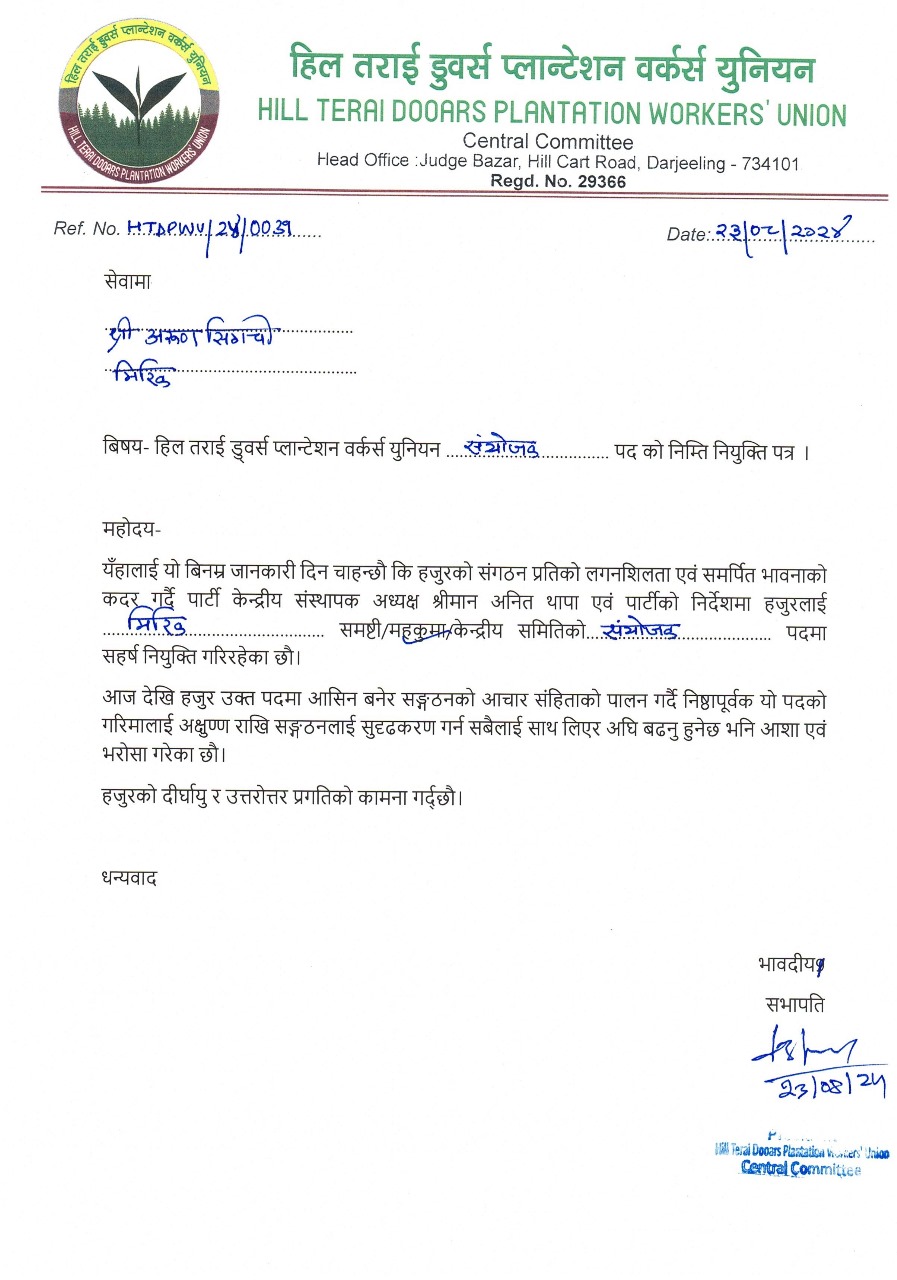 हिल तराई डुवर्स प्लान्टेशन वर्कर्स युनियन
HILL TERAI DOOARS PLANTATION WORKERS' UNION
हिल तराई डुवर्स प्लान्टेशन वर्कर्स युनियन
HILL TERAI DOOARS PLANTATION WORKERS' UNION
Central Committee
Head Office :Judge Bazar, Hill Cart Road, Darjeeling - 734101
Regd. No. 29366
Ref. No. HTDPWU/24/0039 Date: 23/08/2024
सेवामा
श्री अरुण सिगची
मिरिक
बिषय- हिल तराई डुवर्स प्लान्टेशन वर्कर्स युनियन संयोजक पद को निम्ति नियुक्ति पत्र ।
महोदय-
यँहालाई यो बिनम्र जानकारी दिन चाहन्छौ कि हजुरको संगठन प्रतिको लगनशिलता एवं समर्पित भावनाको
कदर गर्दै पार्टी केन्द्रीय संस्थापक अध्यक्ष श्रीमान अनित थापा एवं पार्टीको निर्देशमा हजुरलाई
मिरिक समष्टी/महकुमा/केन्द्रीय समितिको संयोजक पदमा
सहर्ष नियुक्ति गरिरहेका छौ।
आज देखि हजुर उक्त पदमा आसिन बनेर सङ्गठनको आचार संहिताको पालन गर्दै निष्ठापूर्वक यो पदको
गरिमालाई अक्षुण्ण राखि सङ्गठनलाई सुदृढकरण गर्न सबैलाई साथ लिएर अघि बढनु हुनेछ भनि आशा एवं
भरोसा गरेका छौ।
हजुरको दीर्घायु र उत्तरोत्तर प्रगतिको कामना गर्द्छौ।
धन्यवाद
भावदीय
सभापति
23/08/24
Hill Terai Dooars Plantation Workers' Union
Central Committee